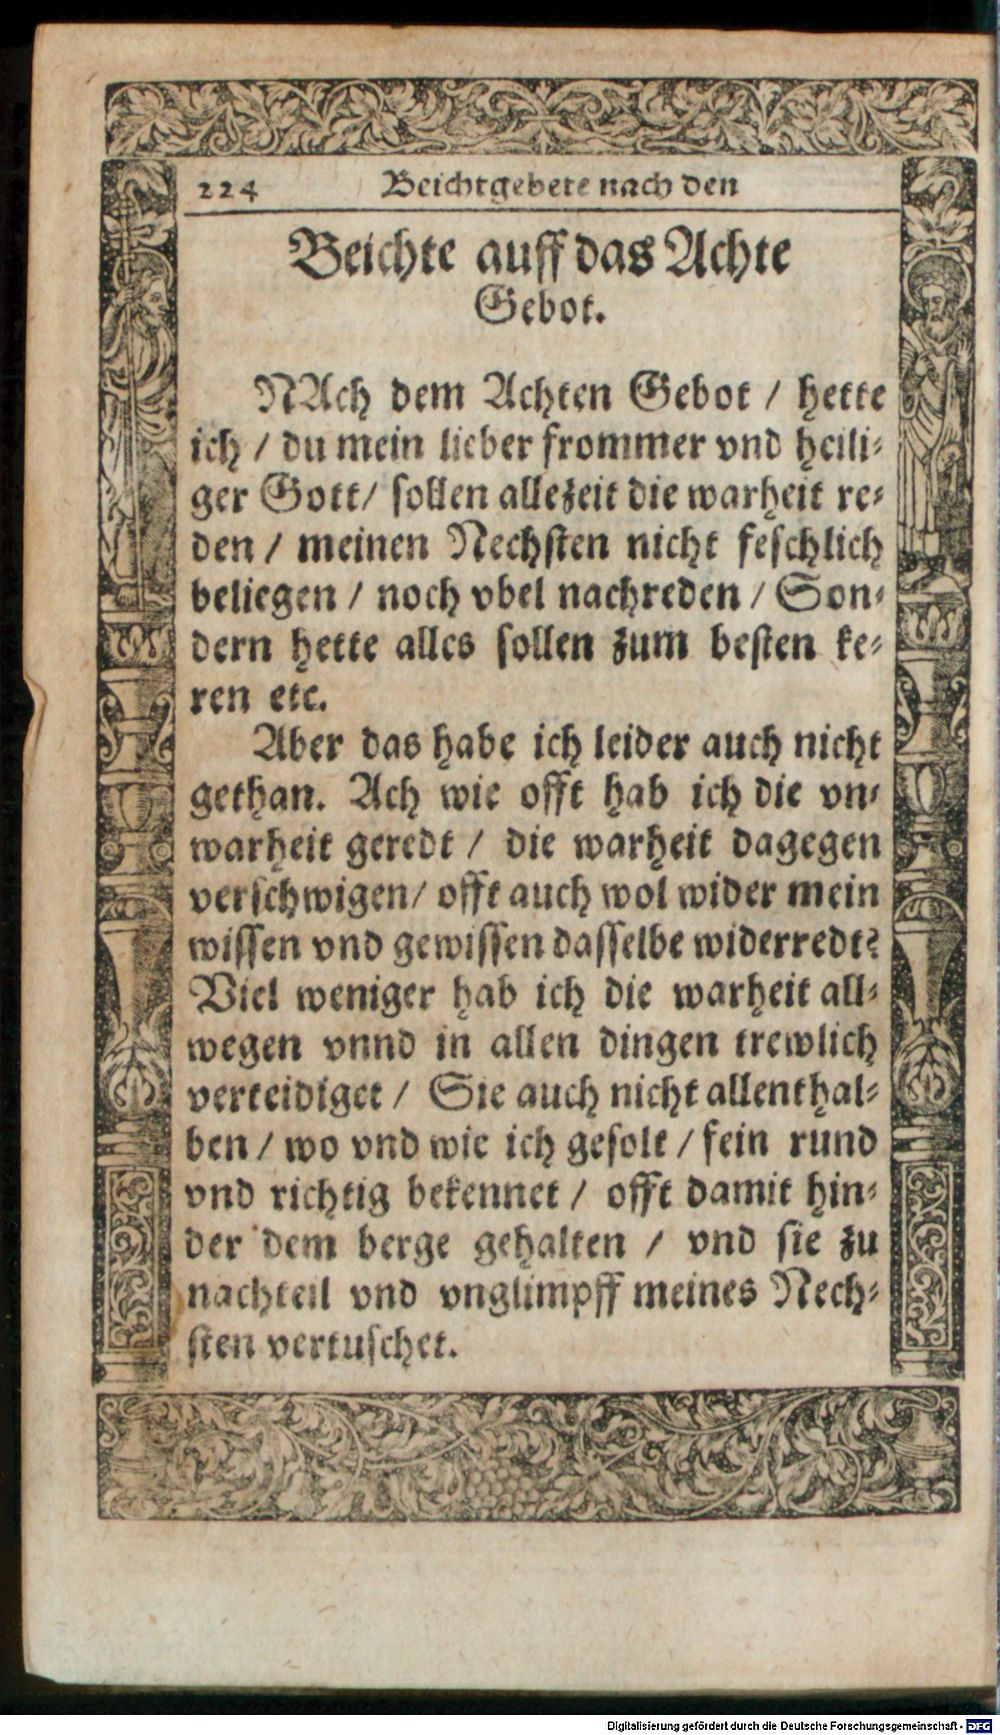 224 Beichtgebete nach den
Beichte auff das Achte
Gebot.
NAch dem Achten Gebot / hette
ich / du mein lieber frommer vnd heili-
ger Gott / sollen allezeit die warheit re-
den / meinen Nechsten nicht felschlich
beliegen / noch vbel nachreden / Son-
dern hette alles sollen zum besten ke-
ren etc.
Aber das habe ich leider auch nicht
gethan. Ach wie offt hab ich die vn-
warheit geredt / die warheit dagegen
verschwigen / offt auch wol wider mein
wissen vnd gewissen dasselbe widerredt?
Viel weniger hab ich die warheit all-
wegen vnnd in allen dingen trewlich
verteidiget / Sie auch nicht allenthal-
ben / wo vnd wie ich gesolt / fein rund
vnd richtig bekennet / offt damit hin-
der dem berge gehalten / vnd sie zu
nachteil vnd vnglimpff meines Nech-
sten vertuschet.
Digitalisierung gefördert durch die Deutsche Forschungsgemeinschaft - DFG